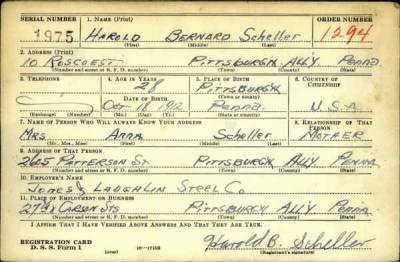 SERIAL NUMBER 1. NAME (Print) ORDER NUMBER
1975 HAROLD BERNARD SCHELLER 1294
(First) (Middle) (Last)
2. ADDRESS (Print)
10 ROSCOE ST PITTSBURGH ALLY PENNA
(Number and street or R. F. D. number) (Town) (County) (State)
3. TELEPHONE 4. AGE IN YEARS 5. PLACE OF BIRTH 6. COUNTRY OF CITIZENSHIP
28 PITTSBURGH
DATE OF BIRTH (Town or county)
OCT 18 1912 PENNA. U.S.A.
(Exchange) (Number) (Mo.) (Day) (Yr.) (State or country)
7. NAME OF PERSON WHO WILL ALWAYS KNOW YOUR ADDRESS 8. RELATIONSHIP OF THAT PERSON
MRS ANNA SCHELLER MOTHER
(Mr., Mrs., Miss) (First) (Middle) (Last)
9. ADDRESS OF THAT PERSON
2605 PATTERSON ST PITTSBURGH ALLY PENNA
(Number and street or R. F. D. number) (Town) (County) (State)
10. EMPLOYER'S NAME
JONES & LAUGHLIN STEEL CO
11. PLACE OF EMPLOYMENT OR BUSINESS
27 & CARSON STS PITTSBURGH ALLY PENNA
(Number and street or R. F. D. number) (Town) (County) (State)
I AFFIRM THAT I HAVE VERIFIED ABOVE ANSWERS AND THAT THEY ARE TRUE.
REGISTRATION CARD
D. S. S. Form 1 Harold B. Scheller
(Registrant's signature)